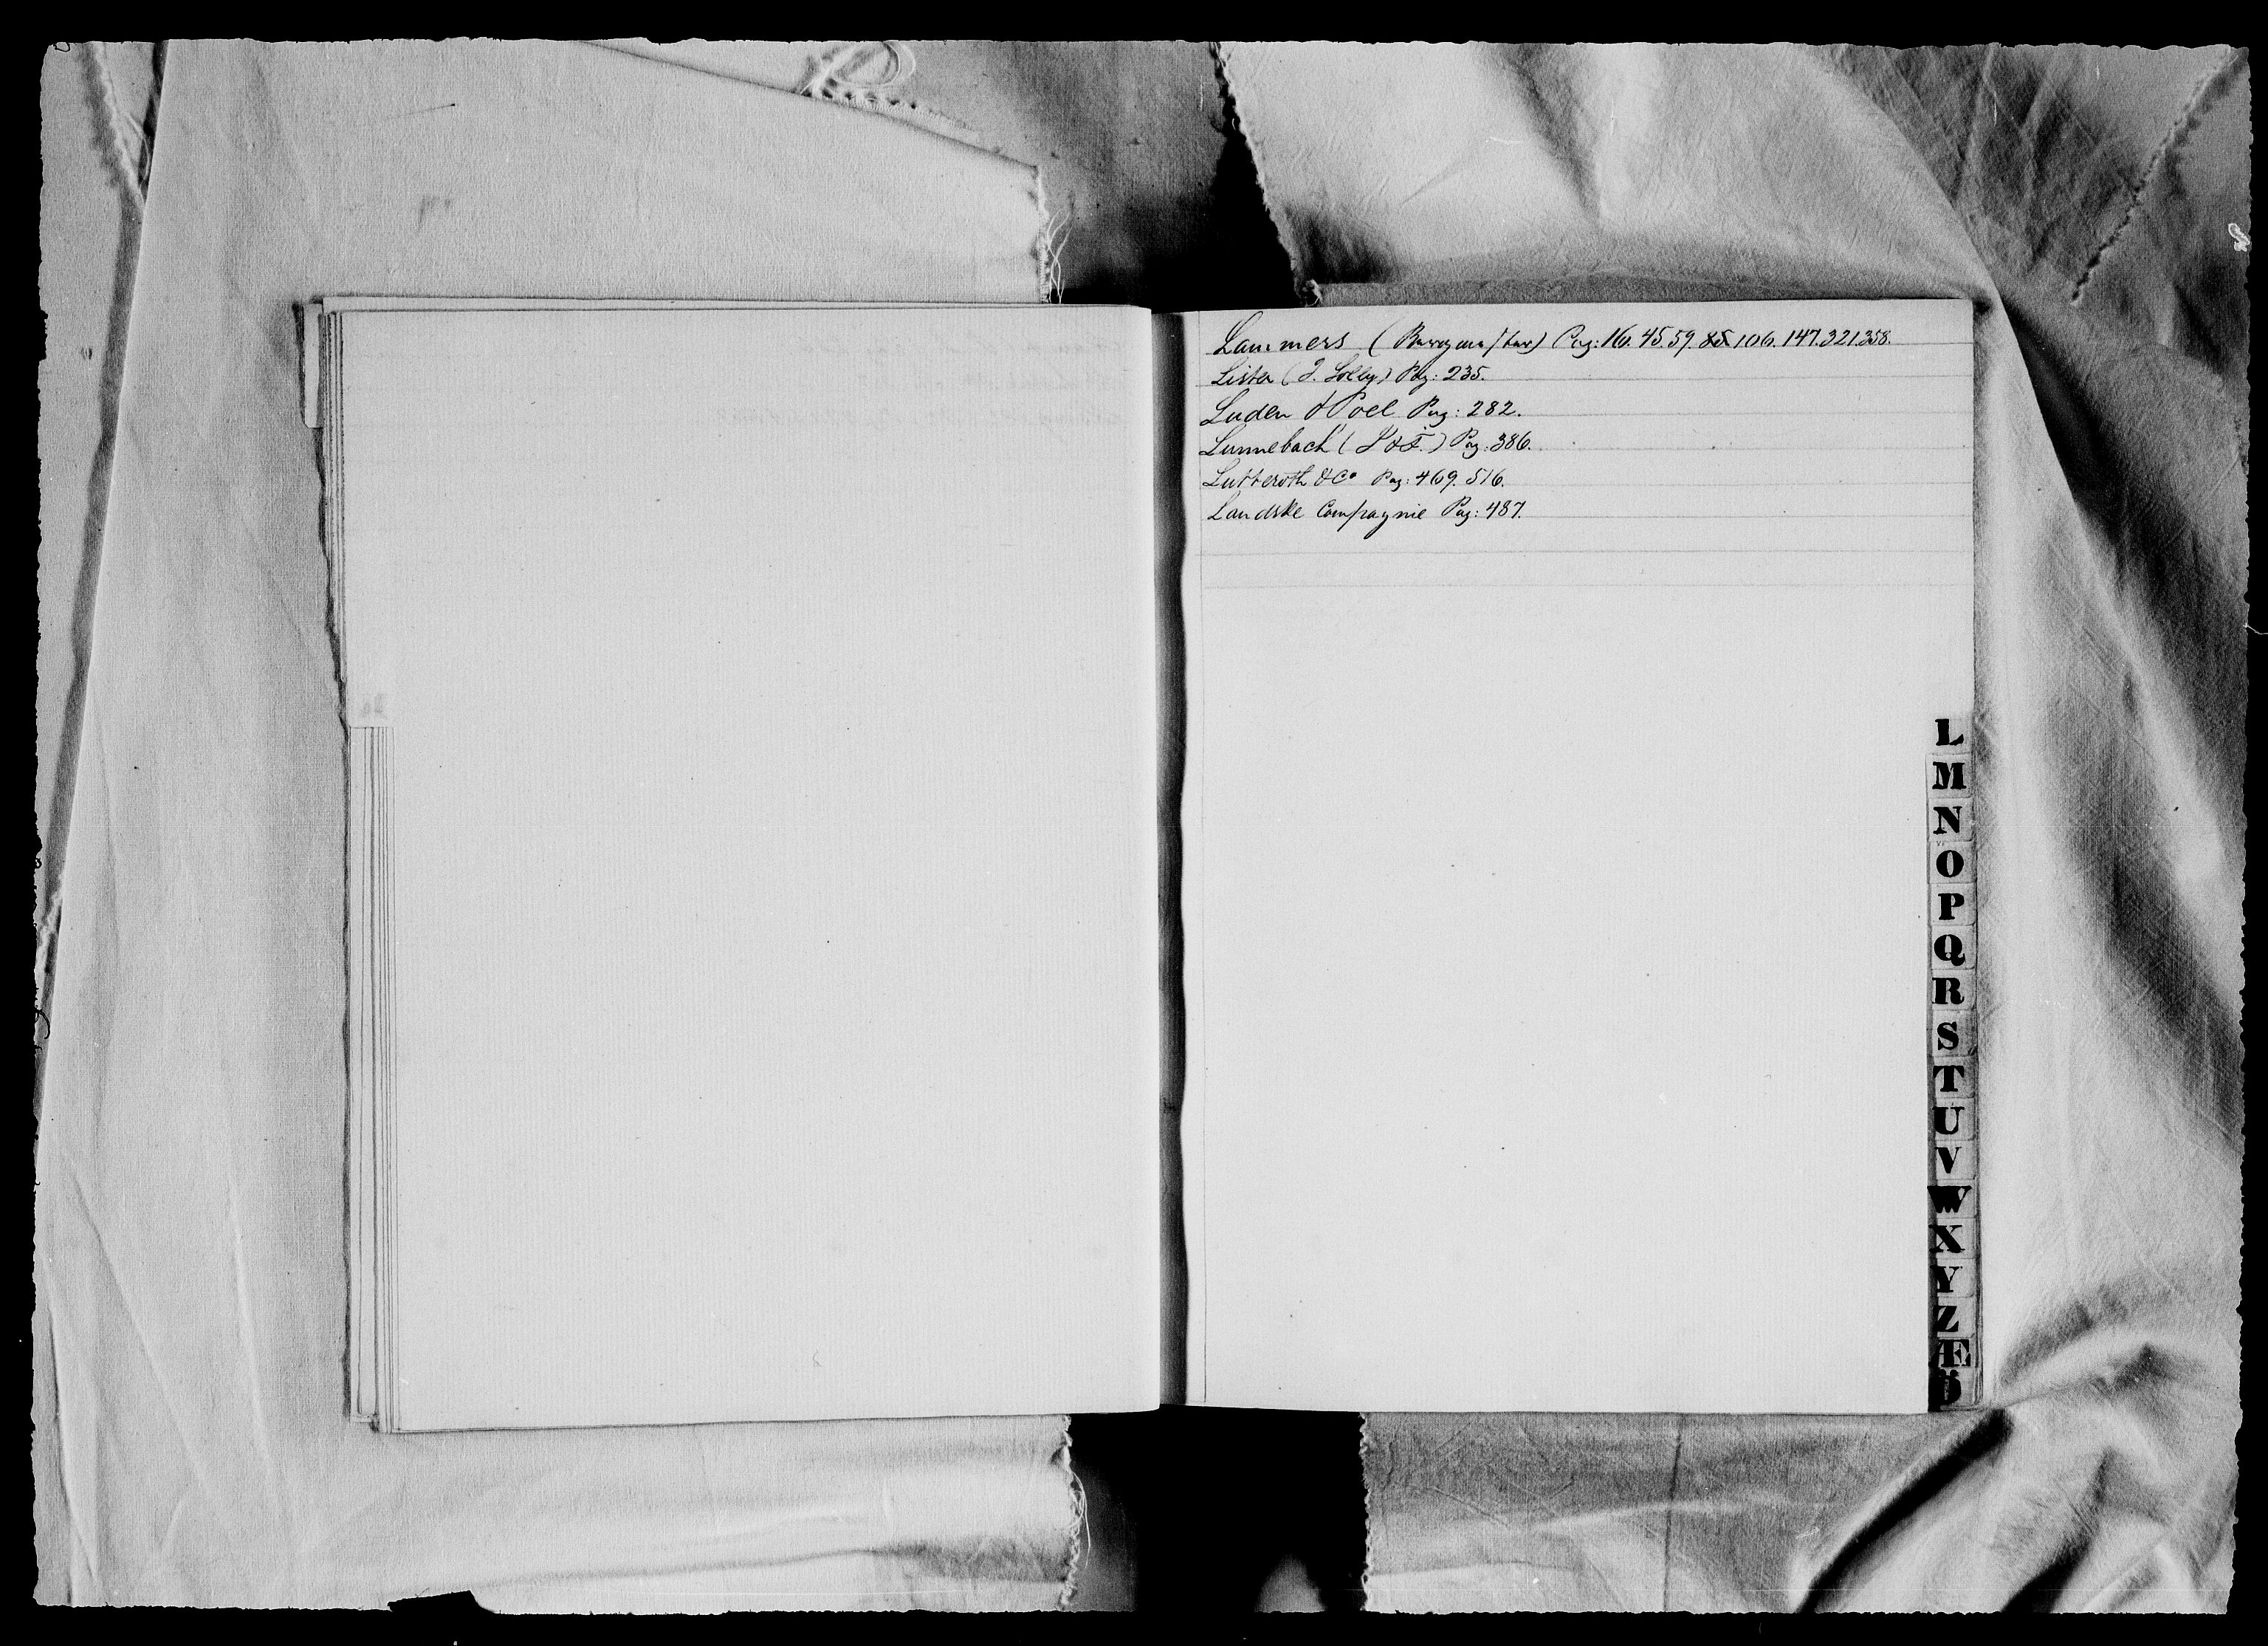 Lammers ( Pag: 16. 45. 59. 85. 106. 147. 321. 358.
Lister (J. Solly) Pag: 235.
Luden & Poel Pag: 282.
Lunnebach ( & F.) Pag: 386.
Lutteroth & Co Pag: 469. 516.
Landske Compagnie Pag: 487.
L
M
N
O
P
Q
R
S
T
U
V
W
X
Y
Z
Æ
Ö